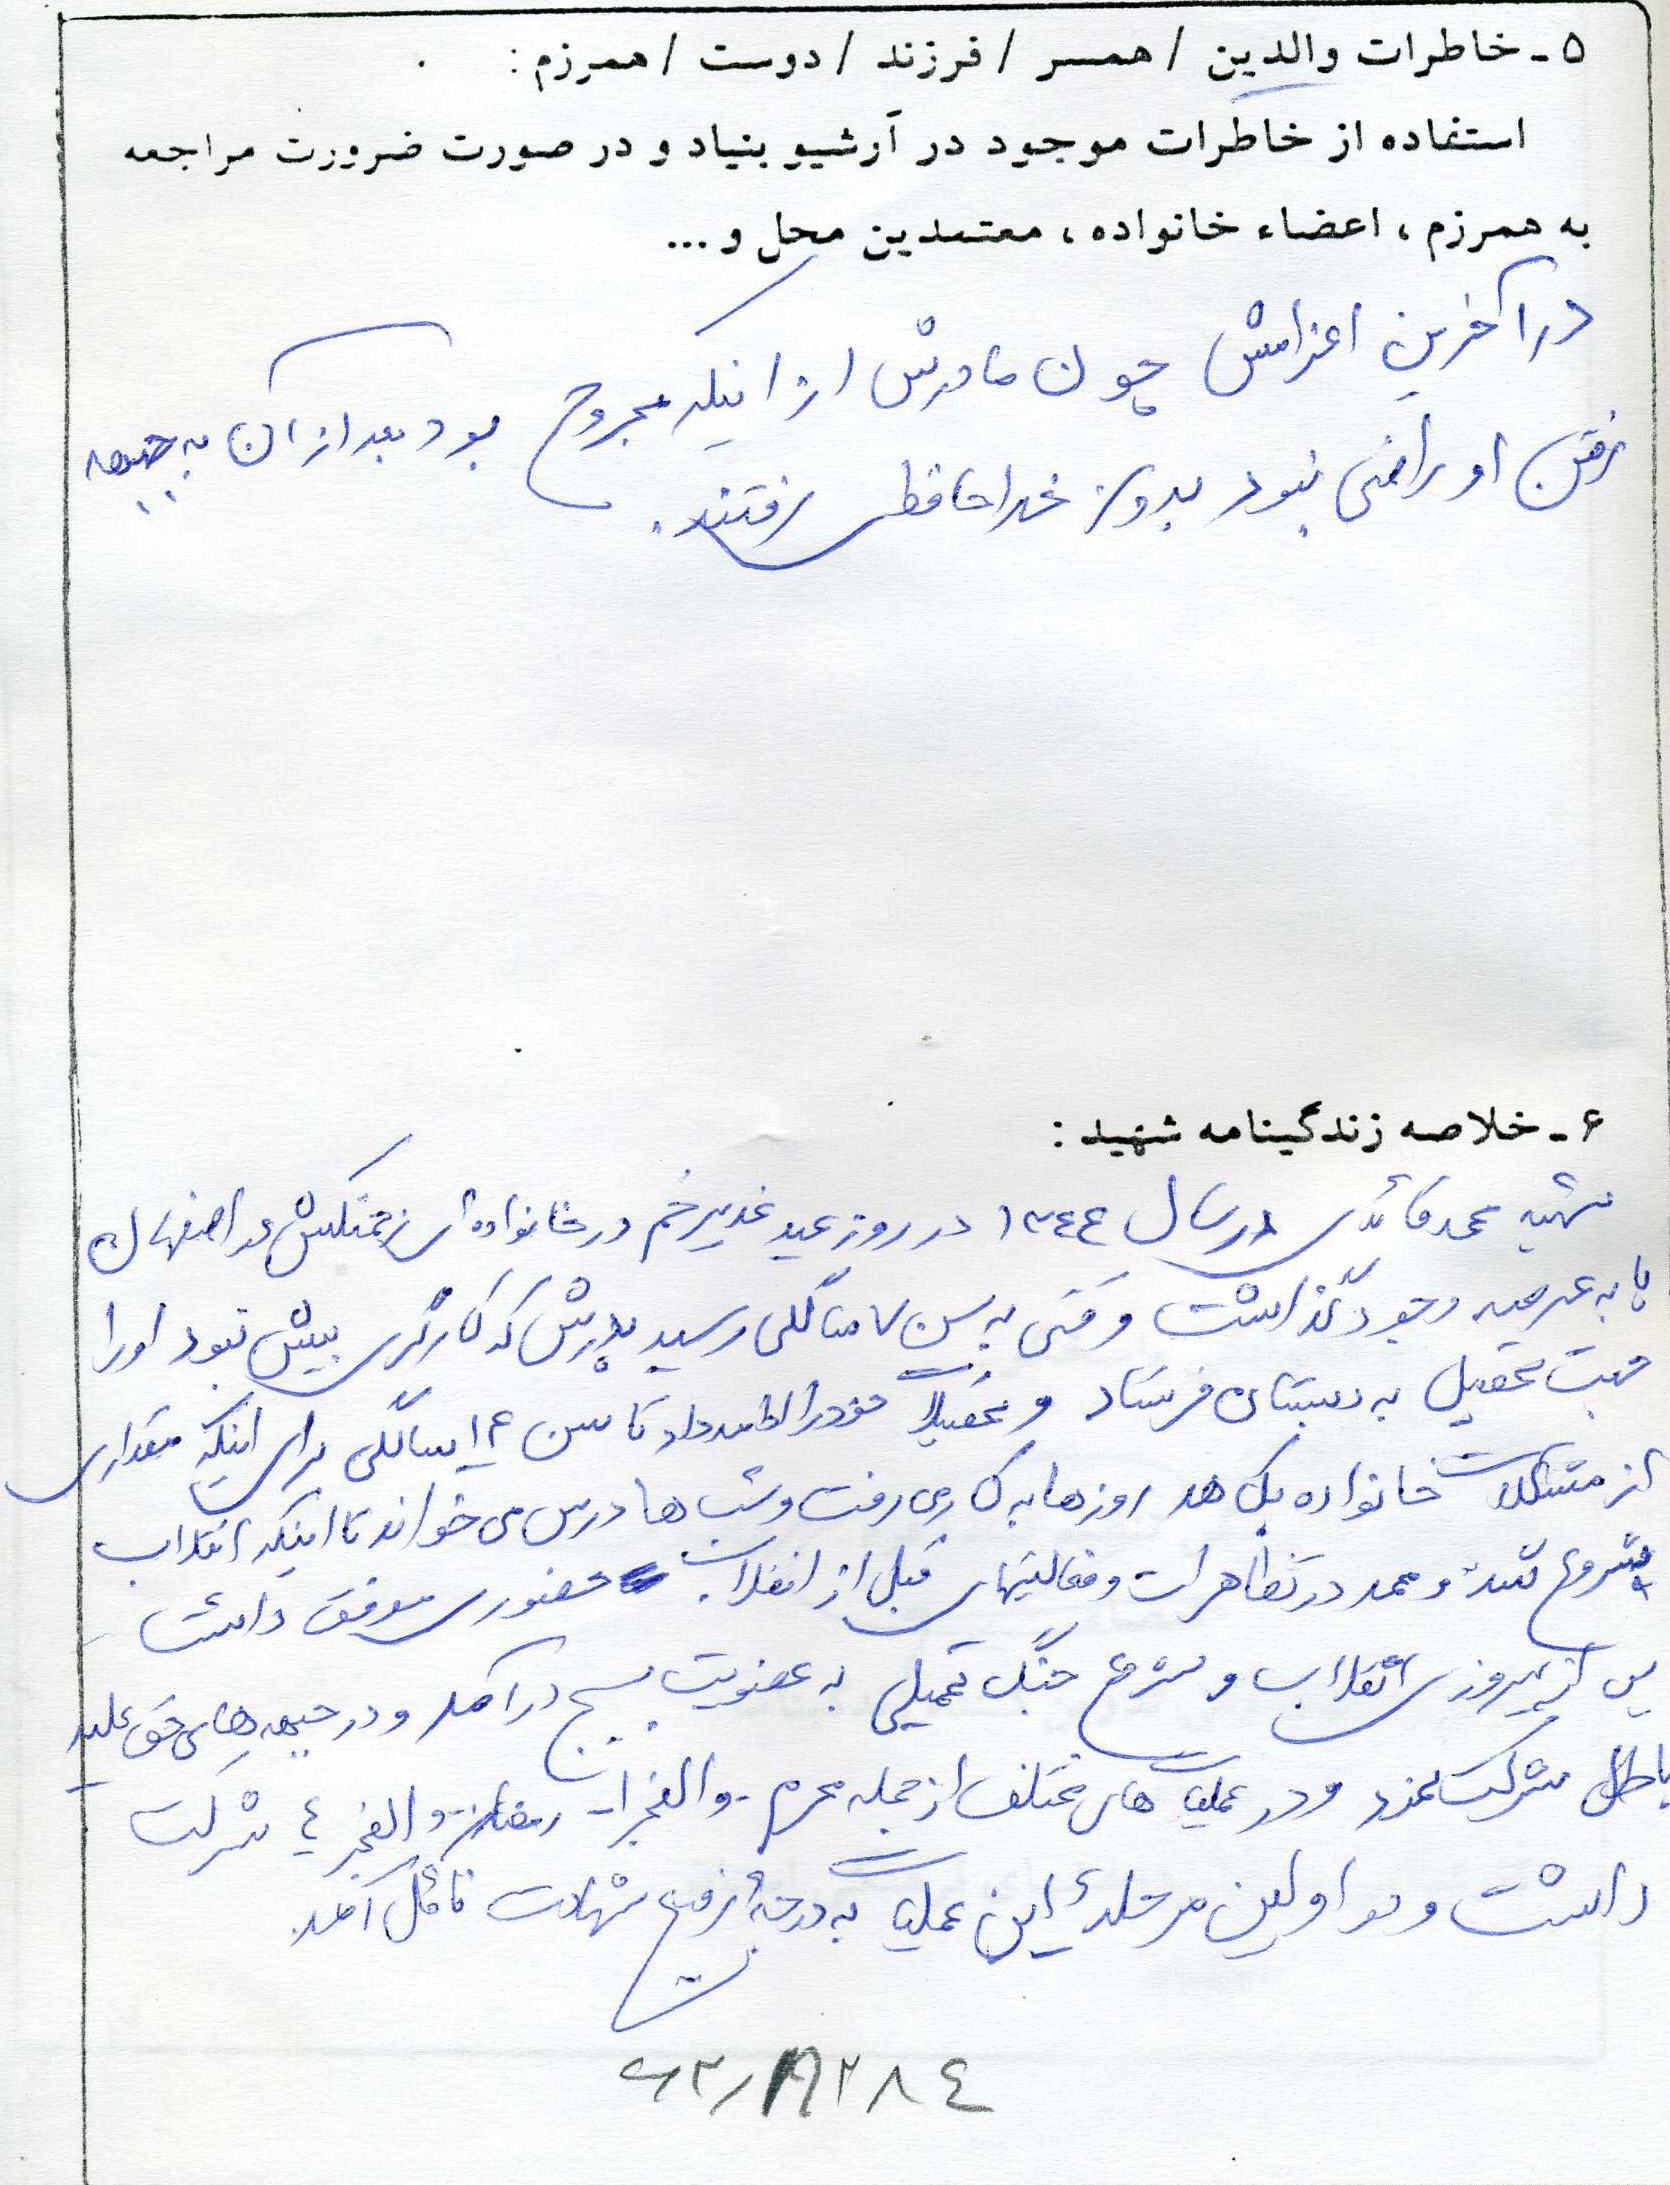 ۵ ـ خاطرات والدین / همسر / فرزند / دوست / همرزم :
استفاده از خاطرات موجود در آرشیو بنیاد و در صورت ضرورت مراجعه
به همرزم ، اعضاء خانواده ، معتمدین محل و ...
در آخرین اعزامش چون مادرش از اینکه مجروح بود بعد از آن به جبهه
رفتن او راضی نبود بدون خداحافظی رفتند.
۶ ـ خلاصه زندگینامه شهید :
شهید محمد قائدی در سال ۱۳٤٤ در روز عید غدیر خم در خانواده ای زحمتکش در اصفهان
پا به عرصه وجود گذاشت وقتی به سن ۷ سالگی رسید پدرش که کارگری بیش نبود او را
جهت تحصیل به دبستان فرستاد و تحصیلات خود را ادامه داد تا سن ۱۴ سالگی برای اینکه مقداری
از مشکلات خانواده بکاهد روزها به کار می رفت و شب ها درس می خواند تا اینکه انقلاب
شروع شد و محمد در تظاهرات و فعالیتهای قبل از انقلاب حضوری موفق داشت
پس از پیروزی انقلاب و شروع جنگ تحمیلی به عضویت بسیج درآمد و در جبهه های حق علیه
باطل شرکت نمود و در عملیات های مختلف از جمله محرم - والفجر ۱ - رمضان - والفجر ٤ شرکت
داشت و در اولین مرحلهٔ این عملیات به درجهٔ رفیع شهادت نائل آمد.